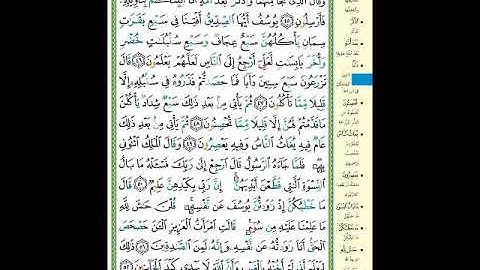 وَقَالَ ٱلَّذِى نَجَا مِنْهُمَا وَٱدَّكَرَ بَعْدَ أُمَّةٍ أَنَا۠ أُنَبِّئُكُم بِتَأْوِيلِهِۦ
فَأَرْسِلُونِ ﴿٤٥﴾ يُوسُفُ أَيُّهَا ٱلصِّدِّيقُ أَفْتِنَا فِى سَبْعِ بَقَرَٰتٍ
سِمَانٍ يَأْكُلُهُنَّ سَبْعٌ عِجَافٌ وَسَبْعِ سُنۢبُلَٰتٍ خُضْرٍ
وَأُخَرَ يَابِسَٰتٍ لَّعَلِّىٓ أَرْجِعُ إِلَى ٱلنَّاسِ لَعَلَّهُمْ يَعْلَمُونَ ﴿٤٦﴾ قَالَ
تَزْرَعُونَ سَبْعَ سِنِينَ دَأَبًا فَمَا حَصَدتُّمْ فَذَرُوهُ فِى سُنۢبُلِهِۦٓ إِلَّا
قَلِيلًا مِّمَّا تَأْكُلُونَ ﴿٤٧﴾ ثُمَّ يَأْتِى مِنۢ بَعْدِ ذَٰلِكَ سَبْعٌ شِدَادٌ يَأْكُلْنَ
مَا قَدَّمْتُمْ لَهُنَّ إِلَّا قَلِيلًا مِّمَّا تُحْصِنُونَ ﴿٤٨﴾ ثُمَّ يَأْتِى مِنۢ بَعْدِ ذَٰلِكَ
عَامٌ فِيهِ يُغَاثُ ٱلنَّاسُ وَفِيهِ يَعْصِرُونَ ﴿٤٩﴾ وَقَالَ ٱلْمَلِكُ ٱئْتُونِى
بِهِۦ فَلَمَّا جَآءَهُ ٱلرَّسُولُ قَالَ ٱرْجِعْ إِلَىٰ رَبِّكَ فَسْـَٔلْهُ مَا بَالُ
ٱلنِّسْوَةِ ٱلَّٰتِى قَطَّعْنَ أَيْدِيَهُنَّ إِنَّ رَبِّى بِكَيْدِهِنَّ عَلِيمٌ ﴿٥٠﴾ قَالَ
مَا خَطْبُكُنَّ إِذْ رَٰوَدتُّنَّ يُوسُفَ عَن نَّفْسِهِۦ قُلْنَ حَٰشَ لِلَّهِ
مَا عَلِمْنَا عَلَيْهِ مِن سُوٓءٍ قَالَتِ ٱمْرَأَتُ ٱلْعَزِيزِ ٱلْـَٰٔنَ حَصْحَصَ
ٱلْحَقُّ أَنَا۠ رَٰوَدتُّهُۥ عَن نَّفْسِهِۦ وَإِنَّهُۥ لَمِنَ ٱلصَّٰدِقِينَ ﴿٥١﴾ ذَٰلِكَ
لِيَعْلَمَ أَنِّى لَمْ أَخُنْهُ بِٱلْغَيْبِ وَأَنَّ ٱللَّهَ لَا يَهْدِى كَيْدَ ٱلْخَآئِنِينَ ﴿٥٢﴾